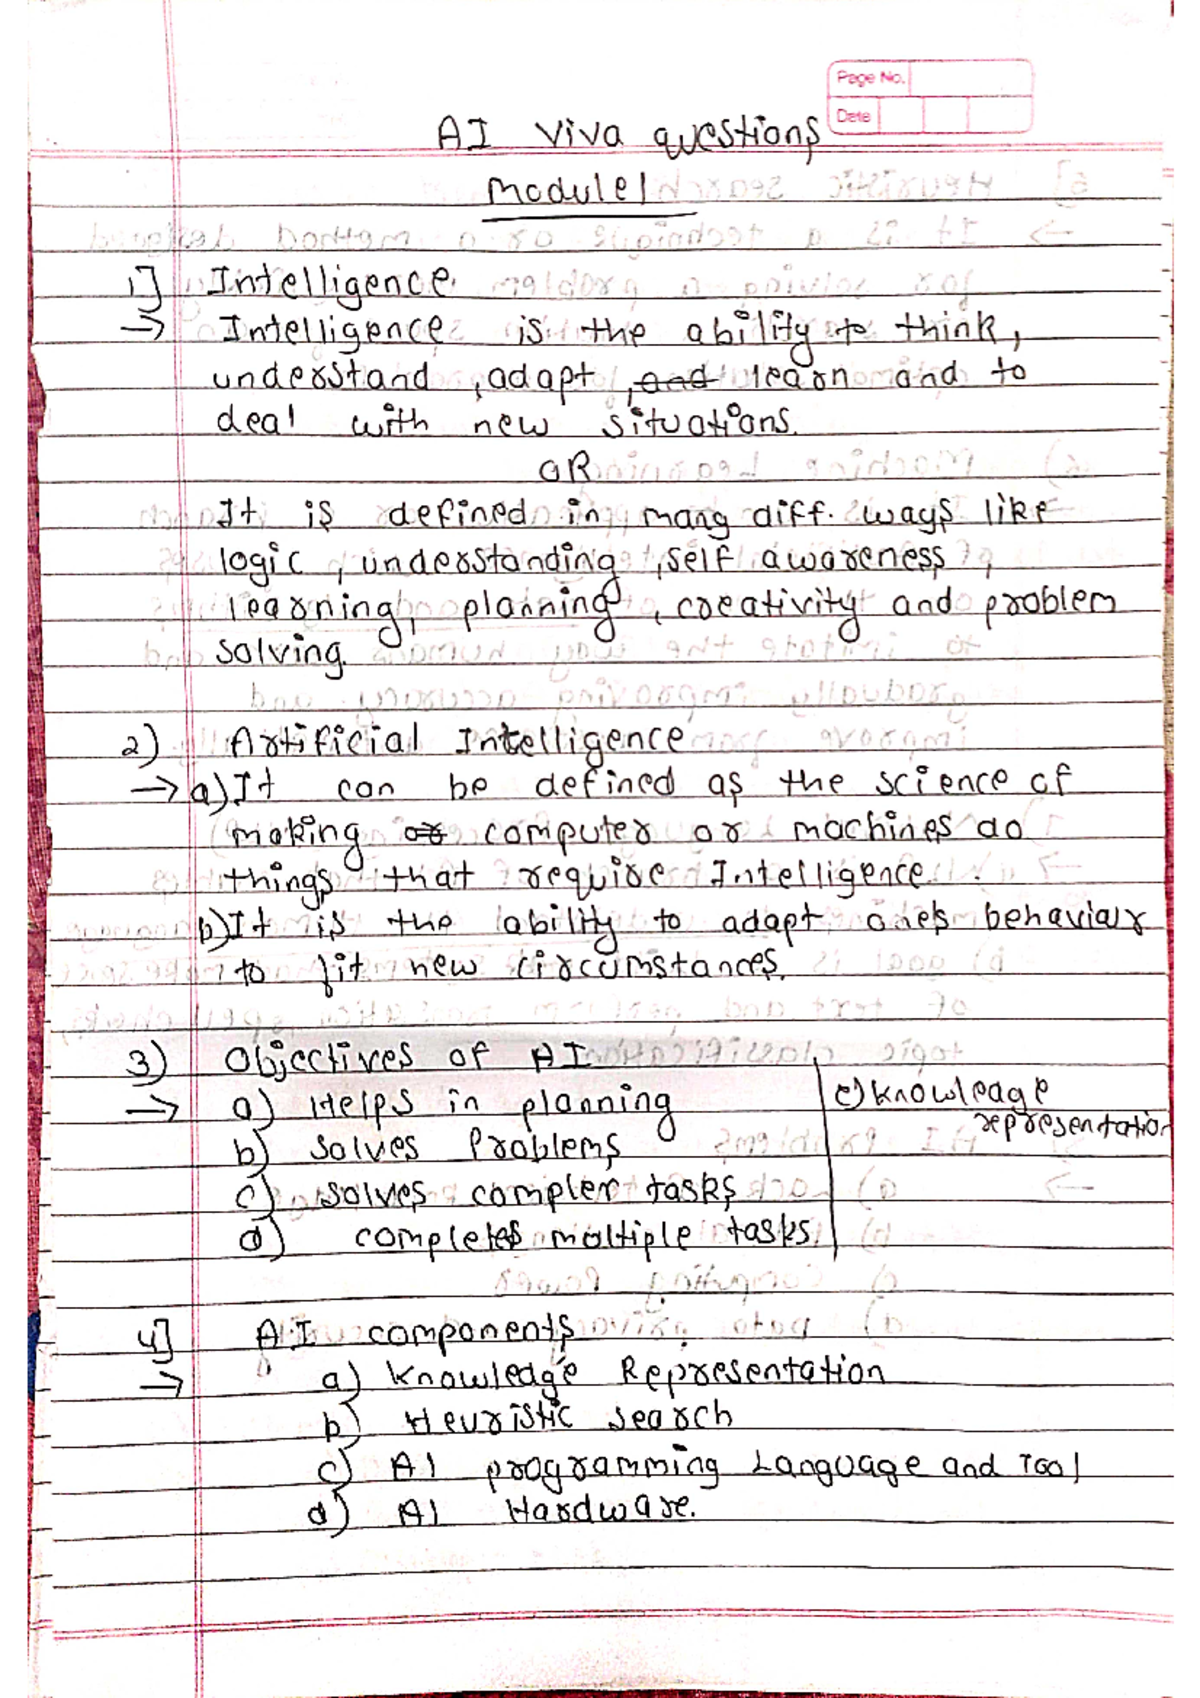 Page No.
Date
AI Viva questions
Module 1
1] Intelligence.
→ Intelligence is the ability to think,
understand, adapt, and learn and to
deal with new situations.
OR
It is defined in many diff. ways like
logic, understanding, self awareness,
learning, planning, creativity and problem
solving.
2) Artificial Intelligence
→ a) It can be defined as the science of
making or computer or machines do
things that require Intelligence.
b) It is the ability to adapt one's behaviour
to fit new circumstances.
3) Objectives of AI
→ a) Helps in planning
b) Solves Problems
c) Solves complex tasks
d) completes multiple tasks.
e) Knowledge
representation
4] AI components
→ a) Knowledge Representation
b) Heuristic search
c) AI programming Language and Tool
d) AI Hardware.